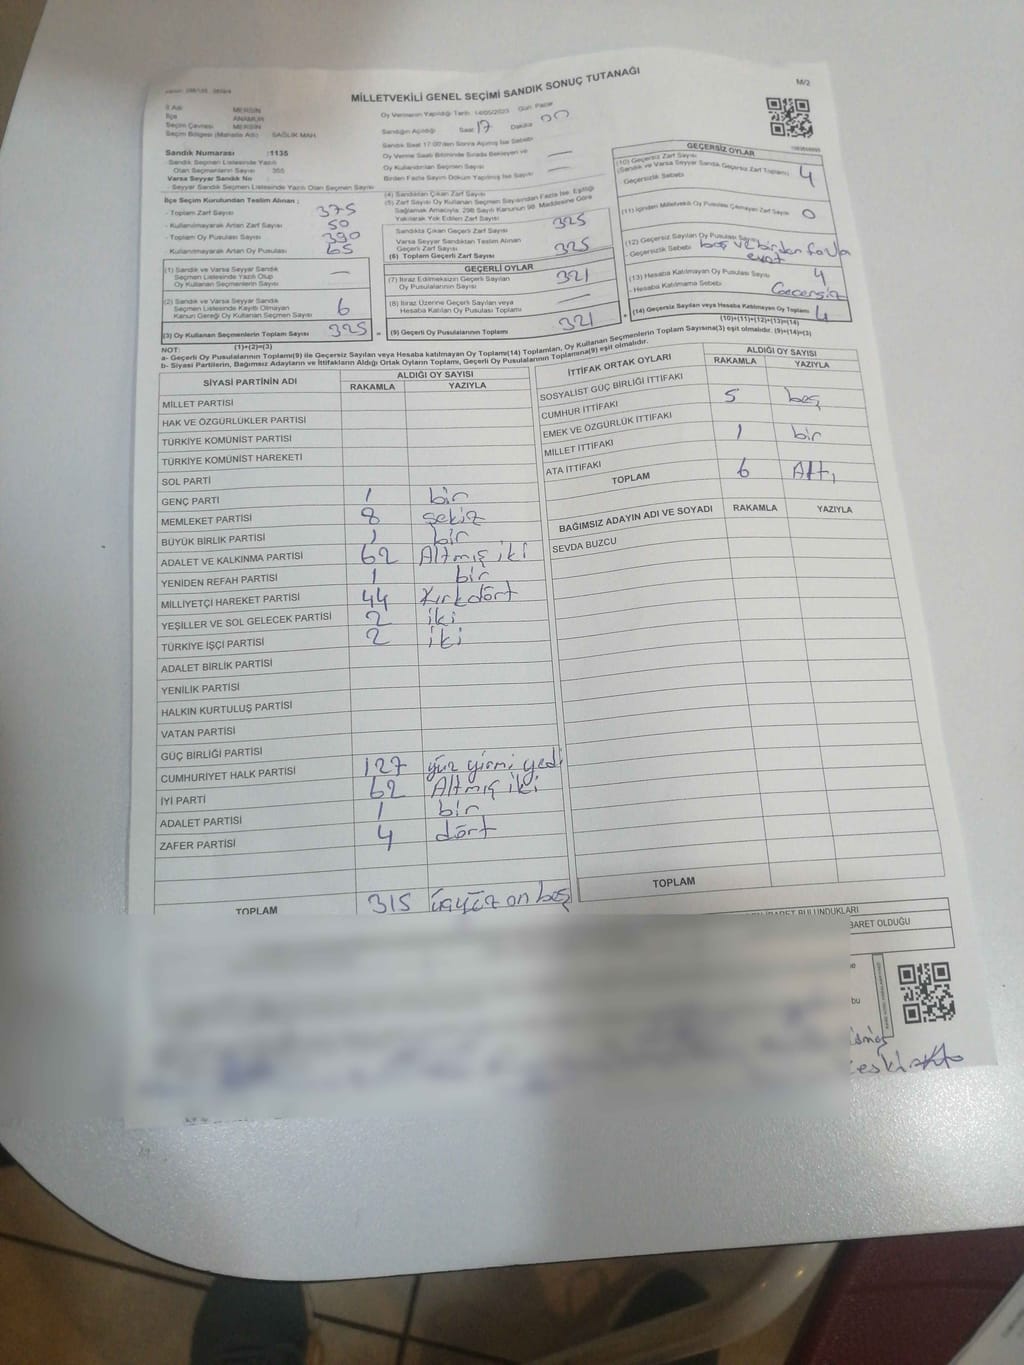 MİLLETVEKİLİ GENEL SEÇİMİ SANDIK SONUÇ TUTANAĞI
M/2
İl Adı MERSİN
İlçe ANAMUR
Seçim Çevresi MERSİN
Seçim Bölgesi (Mahalle Adı) SAĞLIK MAH.
Sandık Numarası :1135
Sandık Seçmen Listesinde Yazılı
Olan Seçmenlerin Sayısı 355
Varsa Seyyar Sandık No
Seyyar Sandık Seçmen Listesinde Yazılı Olan Seçmen Sayısı
Oy Vermenin Yapıldığı Tarih 14/05/2023 Gün Pazar
Sandığın Açıldığı Saat 17 Dakika 00
Sandık Saat 17:00'den Sonra Açılmış İse Sebebi
Oy Verme Saati Bitiminde Sırada Bekleyen ve
Oy Kullandırılan Seçmen Sayısı —
Birden Fazla Sayım Döküm Yapılmış İse Sayısı —
İlçe Seçim Kurulundan Teslim Alınan ;
- Toplam Zarf Sayısı 375
- Kullanılmayarak Artan Zarf Sayısı 50
- Toplam Oy Pusulası Sayısı 390
- Kullanılmayarak Artan Oy Pusulası 65
(1) Sandık ve Varsa Seyyar Sandık
Seçmen Listesinde Yazılı Olup
Oy Kullanan Seçmenlerin Sayısı —
(2) Sandık ve Varsa Seyyar Sandık
Seçmen Listesinde Kayıtlı Olmayan
Kanun Gereği Oy Kullanan Seçmen Sayısı 6
(3) Oy Kullanan Seçmenlerin Toplam Sayısı 325
(1)+(2)=(3)
(4) Sandıktan Çıkan Zarf Sayısı
(5) Zarf Sayısı Oy Kullanan Seçmen Sayısından Fazla İse, Eşitliği
Sağlamak Amacıyla, 298 Sayılı Kanunun 98. Maddesine Göre
Yakılarak Yok Edilen Zarf Sayısı
Sandıkta Çıkan Geçerli Zarf Sayısı 325
Varsa Seyyar Sandıktan Teslim Alınan
Geçerli Zarf Sayısı
(6) Toplam Geçerli Zarf Sayısı 325
GEÇERLİ OYLAR
(7) İtiraz Edilmeksizin Geçerli Sayılan
Oy Pusulasının Sayısı 321
(8) İtiraz Üzerine Geçerli Sayılan veya
Hesaba Katılan Oy Pusulası Toplamı —
= (9) Geçerli Oy Pusulalarının Toplamı 321
GEÇERSİZ OYLAR
(10) Geçersiz Zarf Sayısı
(Sandık ve Varsa Seyyar Sandık Geçersiz Zarf Toplamı) 4
Geçersizlik Sebebi
(11) İçinden Milletvekili Oy Pusulası Çıkmayan Zarf Sayısı 0
(12) Geçersiz Sayılan Oy Pusulası Sayısı
- Geçersizlik Sebebi boş ve birden fazla evet
(13) Hesaba Katılmayan Oy Pusulası Sayısı 4
- Hesaba Katılmama Sebebi Geçersiz
+ (14) Geçersiz Sayılan veya Hesaba Katılmayan Oy Toplamı 4
(10)+(11)+(12)+(13)=(14)
NOT:
a- Geçerli Oy Pusulalarının Toplamı(9) ile Geçersiz Sayılan veya Hesaba katılmayan Oy Toplamı(14) Toplamları, Oy Kullanan Seçmenlerin Toplam Sayısına(3) eşit olmalıdır. (9)+(14)=(3)
b- Siyasi Partilerin, Bağımsız Adayların ve İttifakların Aldığı Ortak Oyların Toplamı, Geçerli Oy Pusulalarının Toplamına(9) eşit olmalıdır.
SİYASİ PARTİNİN ADI
ALDIĞI OY SAYISI
RAKAMLA YAZIYLA
MİLLET PARTİSİ
HAK VE ÖZGÜRLÜKLER PARTİSİ
TÜRKİYE KOMÜNİST PARTİSİ
TÜRKİYE KOMÜNİST HAREKETİ
SOL PARTİ
GENÇ PARTİ 1 bir
MEMLEKET PARTİSİ 8 sekiz
BÜYÜK BİRLİK PARTİSİ 1 bir
ADALET VE KALKINMA PARTİSİ 62 Altmış iki
YENİDEN REFAH PARTİSİ 1 bir
MİLLİYETÇİ HAREKET PARTİSİ 44 Kırkdört
YEŞİLLER VE SOL GELECEK PARTİSİ 2 iki
TÜRKİYE İŞÇİ PARTİSİ 2 iki
ADALET BİRLİK PARTİSİ
YENİLİK PARTİSİ
HALKIN KURTULUŞ PARTİSİ
VATAN PARTİSİ
GÜÇ BİRLİĞİ PARTİSİ
CUMHURİYET HALK PARTİSİ 127 yüz yirmi yedi
İYİ PARTİ 62 Altmış iki
ADALET PARTİSİ 1 bir
ZAFER PARTİSİ 4 dört
TOPLAM 315 üçyüz on beş
İTTİFAK ORTAK OYLARI
ALDIĞI OY SAYISI
RAKAMLA YAZIYLA
SOSYALİST GÜÇ BİRLİĞİ İTTİFAKI
CUMHUR İTTİFAKI 5 beş
EMEK VE ÖZGÜRLÜK İTTİFAKI
MİLLET İTTİFAKI 1 bir
ATA İTTİFAKI
TOPLAM 6 Altı
BAĞIMSIZ ADAYIN ADI VE SOYADI RAKAMLA YAZIYLA
SEVDA BUZCU
TOPLAM
BULUNDUKLARI
BARET OLDUĞU
bu